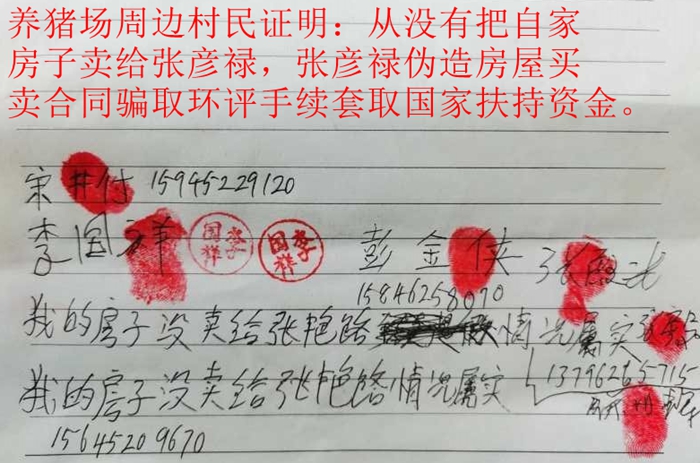 养猪场周边村民证明：从没有把自家
房子卖给张彦禄，张彦禄伪造房屋买
卖合同骗取环评手续套取国家扶持资金。
宋井付 15945229120
李国祥 李国祥 李国祥 彭金侠
15846258070
我的房子没卖给张艳路 情况属实
我的房子没卖给张艳路情况属实 13796265715
15645209670